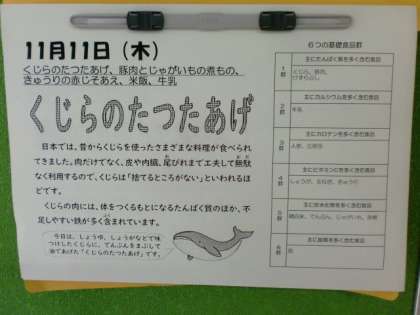 11月11日（木）
くじらのたつたあげ、豚肉とじゃがいもの煮もの、
きゅうりの赤じそあえ、米飯、牛乳
くじらのたつたあげ
日本では、昔からくじらを使ったさまざまな料理が食べられ
てきました。肉だけでなく、皮や内臓、尾びれまで工夫して無駄
なく利用するので、くじらは「捨てるところがない」といわれるほ
どです。
くじらの肉には、体をつくるもとになるたんぱく質のほか、不
足しやすい鉄が多く含まれています。
今日は、しょうゆ、しょうがなどで味
つけしたくじらに、でんぷんをまぶして
油であげた「くじらのたつたあげ」です。
6つの基礎食品群
主にたんぱく質を多く含む食品
1群
くじら、豚肉、
主にカルシウムを多く含む食品
2群
牛乳
主にカロテンを多く含む食品
3群
人参、
主にビタミンCを多く含む食品
4群
しょうが、玉ねぎ、きゅうり
主に炭水化物を多く含む食品
5群
精白米、でんぷん、じゃがいも、砂糖
主に脂質を多く含む食品
6群
油